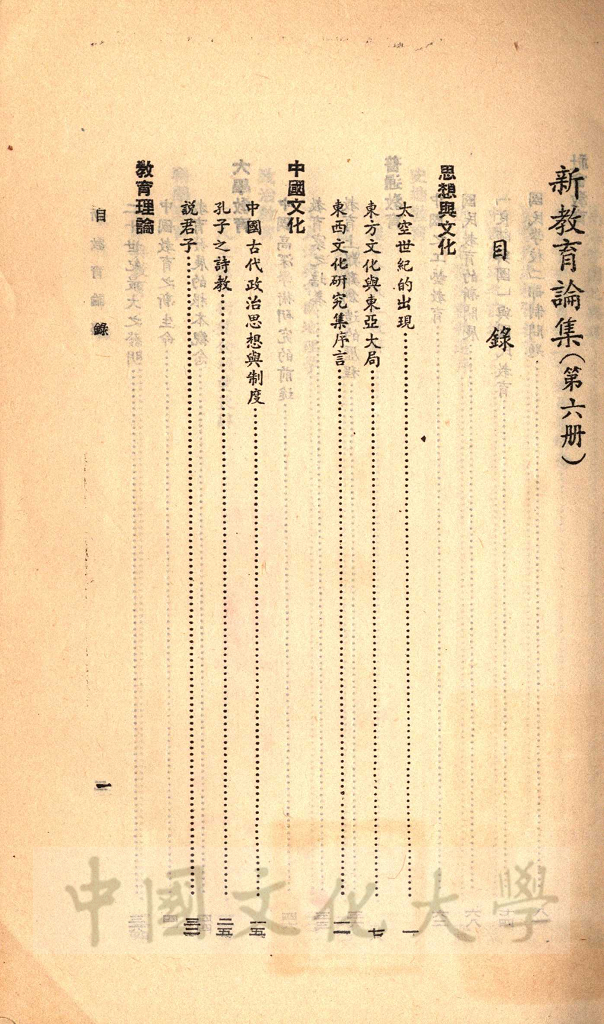 新教育論集（第六册）
目錄
思想與文化
太空世紀的出現……一
東方文化與東亞大局……七
東西文化研究集序言……一一
中國文化
中國古代政治思想與制度……一五
孔子之詩教……二五
說君子……三三
教育理論
目錄
一
中國文化大學